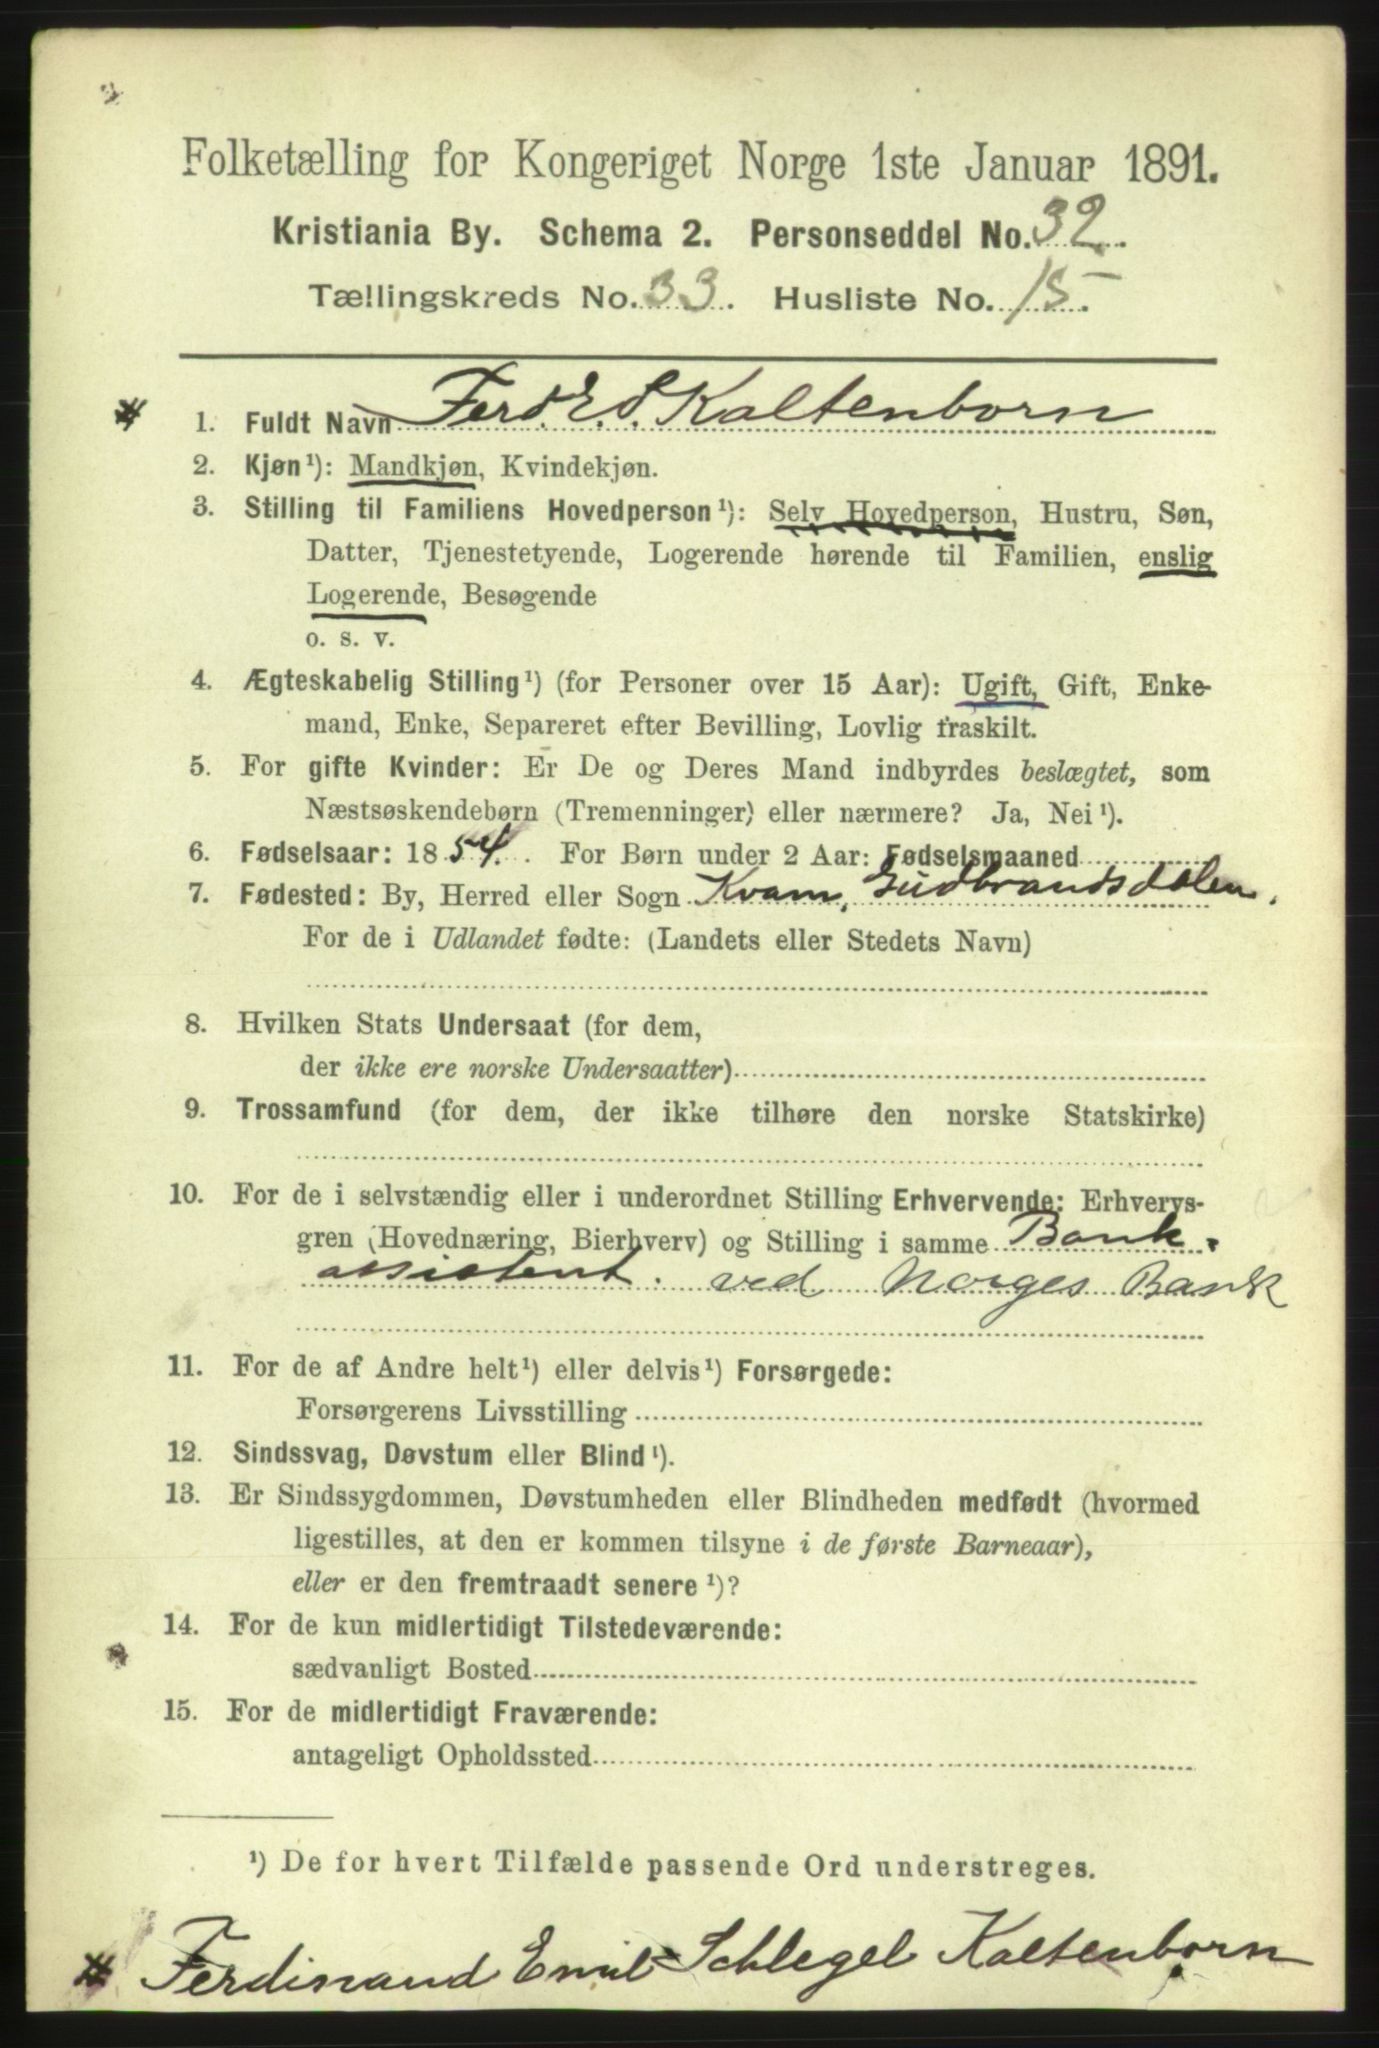 Folketælling for Kongeriget Norge 1ste Januar 1891.
Kristiania By. Schema 2. Personseddel No. 32.
Tællingskreds No. 33. Husliste No. 15.
# 1. Fuldt Navn Ferd. E. S. Kaltenborn
2. Kjøn ¹): Mandkjøn, Kvindekjøn.
3. Stilling til Familiens Hovedperson ¹): Selv Hovedperson, Hustru, Søn,
Datter, Tjenestetyende, Logerende hørende til Familien, enslig
Logerende, Besøgende
o. s. v.
4. Ægteskabelig Stilling ¹) (for Personer over 15 Aar): Ugift, Gift, Enke-
mand, Enke, Separeret efter Bevilling, Lovlig fraskilt.
5. For gifte Kvinder: Er De og Deres Mand indbyrdes beslægtet, som
Næstsøskendebørn (Tremenninger) eller nærmere? Ja, Nei ¹).
6. Fødselsaar: 1854. For Børn under 2 Aar: Fødselsmaaned
7. Fødested: By, Herred eller Sogn Kvam, Gudbrandsdalen.
For de i Udlandet fødte: (Landets eller Stedets Navn)
8. Hvilken Stats Undersaat (for dem,
der ikke ere norske Undersaatter)
9. Trossamfund (for dem, der ikke tilhøre den norske Statskirke)
10. For de i selvstændig eller i underordnet Stilling Erhvervende: Erhvervs-
gren (Hovednæring, Bierhverv) og Stilling i samme Bank-
assistent. ved Norges Bank
11. For de af Andre helt ¹) eller delvis ¹) Forsørgede:
Forsørgerens Livsstilling
12. Sindssvag, Døvstum eller Blind ¹).
13. Er Sindssygdommen, Døvstumheden eller Blindheden medfødt (hvormed
ligestilles, at den er kommen tilsyne i de første Barneaar),
eller er den fremtraadt senere ¹)?
14. For de kun midlertidigt Tilstedeværende:
sædvanligt Bosted
15. For de midlertidigt Fraværende:
antageligt Opholdssted
¹) De for hvert Tilfælde passende Ord understreges.
# Ferdinand Emil Schlegel Kaltenborn